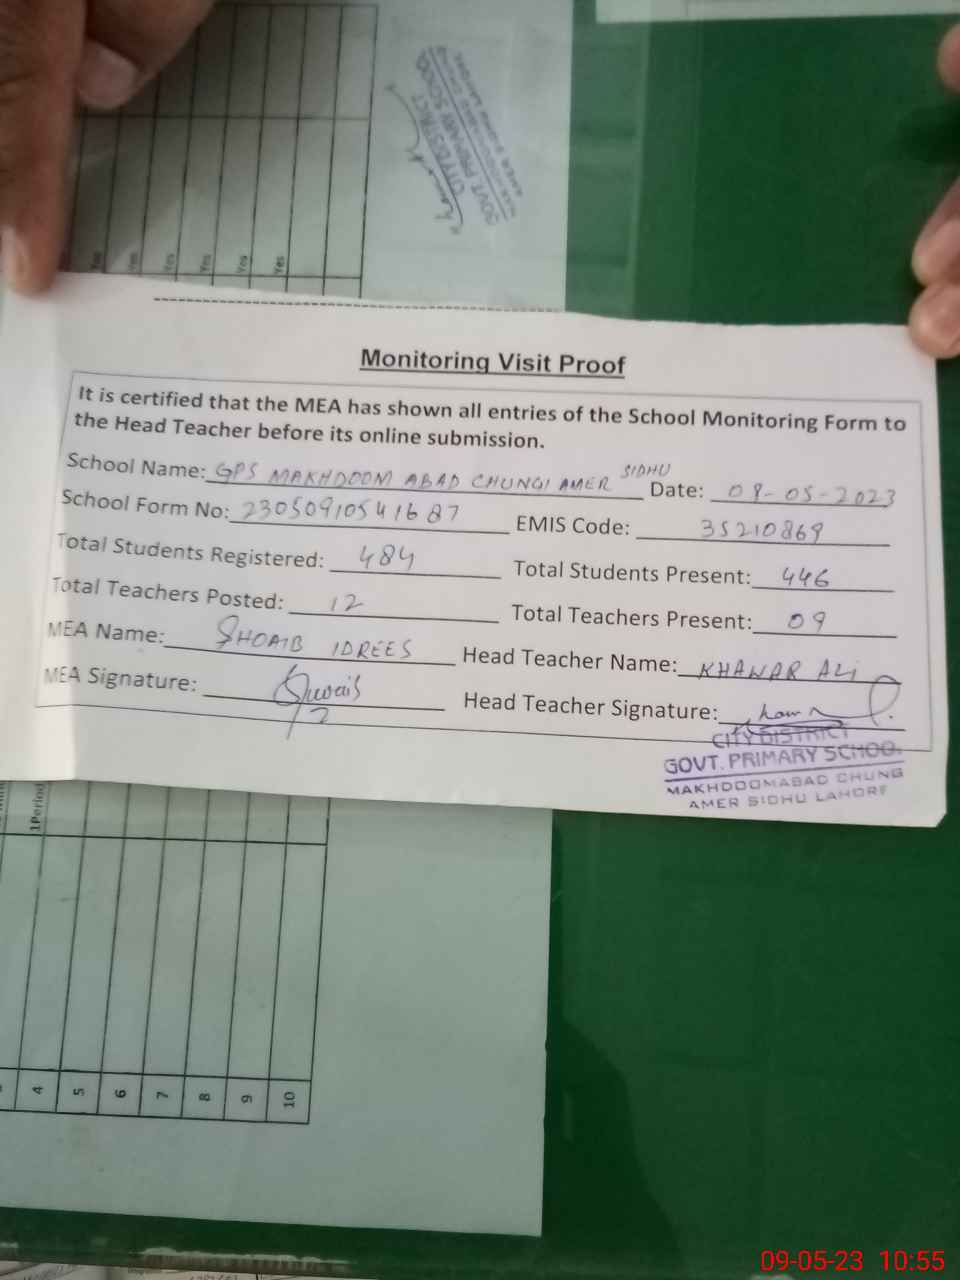 CITY DISTRICT
GOVT. PRIMARY SCHOOL
Yes
Yes
Yes
Yes
Yes
Yes
Monitoring Visit Proof
It is certified that the MEA has shown all entries of the School Monitoring Form to
the Head Teacher before its online submission.
School Name: GPS MAKHDOOM ABAD CHUNGI AMER SIDHU Date: 09-05-2023
School Form No: 23050910541687 EMIS Code: 35210869
Total Students Registered: 484 Total Students Present: 446
Total Teachers Posted: 12 Total Teachers Present: 09
MEA Name: SHOAIB IDREES Head Teacher Name: KHAWAR ALI
MEA Signature: Head Teacher Signature:
CITY DISTRICT
GOVT. PRIMARY SCHOO.
MAKHDOOMABAD CHUNG
AMER SIDHU LAHORE
1Period
4
5
6
7
8
9
10
09-05-23 10:55